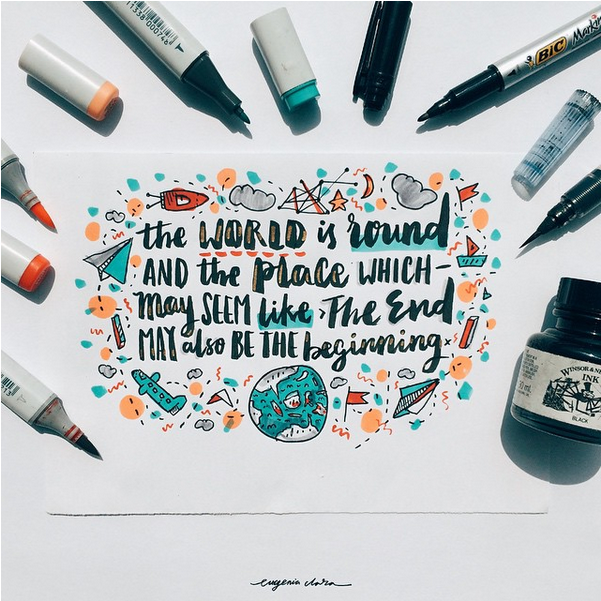 11338 000746
BIC Marking
the WORLD is round
AND the place WHICH-
may SEEM like The End
MAY also BE THE beginning.
WINSOR & NE
INK
BLACK
eugenia clara